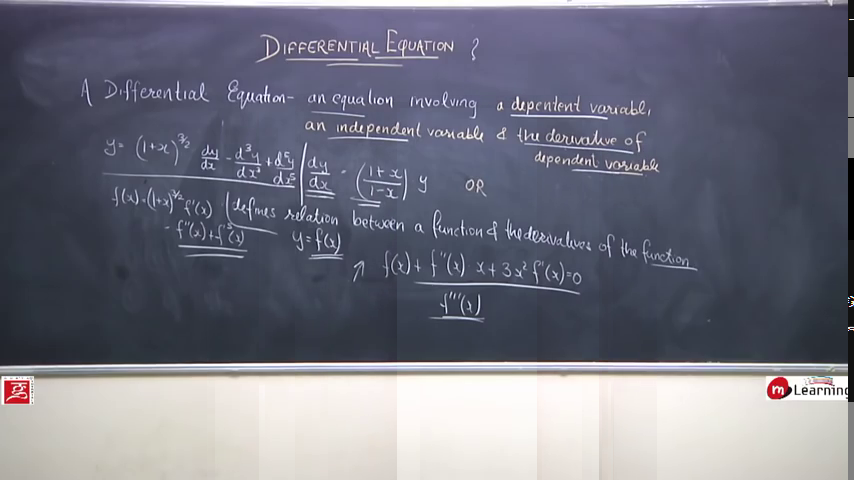 DIFFERENTIAL EQUATION ?
A Differential Equation - an equation involving a depentent variable,
an independent variable & the derivative of
dependent variable
y = (1+x)^3/2 dy/dx - d³y/dx³ + d⁵y/dx⁵ | dy/dx = ((1+x)/(1-x)) y OR
f(x) = (1+x)^3/2 f'(x) | defines relation between a function & the derivatives of the function
- f'''(x) + f⁵(x) y = f(x)
↗ f(x) + f''(x) x + 3x² f'(x) = 0
f'''(x)
m Learning